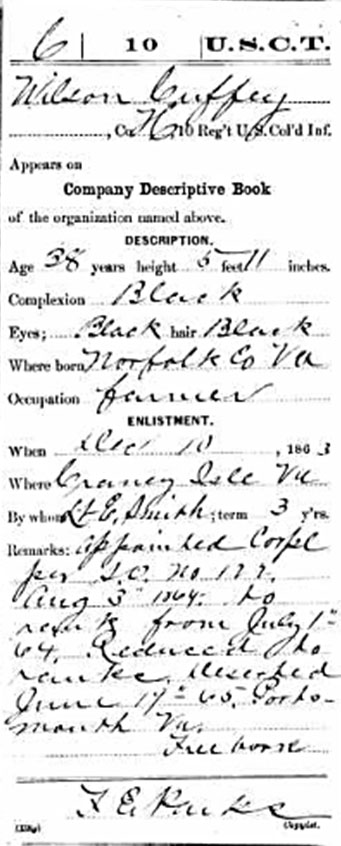 C | 10 | U.S.C.T.
Wilson Cuffey
, Co. H, 10 Reg't U. S. Col'd Inf.
Appears on
Company Descriptive Book
of the organization named above.
DESCRIPTION.
Age 38 years height 5 feet 11 inches.
Complexion Black
Eyes; Black hair Black
Where born Norfolk Co Va
Occupation farmer
ENLISTMENT.
When Dec 10, 1863
Where Craney Isle Va
By whom Lt E. Smith; term 3 y'rs.
Remarks: Appointed Corpl
per S.O. No 177.
Aug 3" 1864. to
rank from July 1"
64. Reduced to
ranks. Deserted
June 17" 65. Ports-
mouth Va.
Free born
F. E. Parks
Copyist.